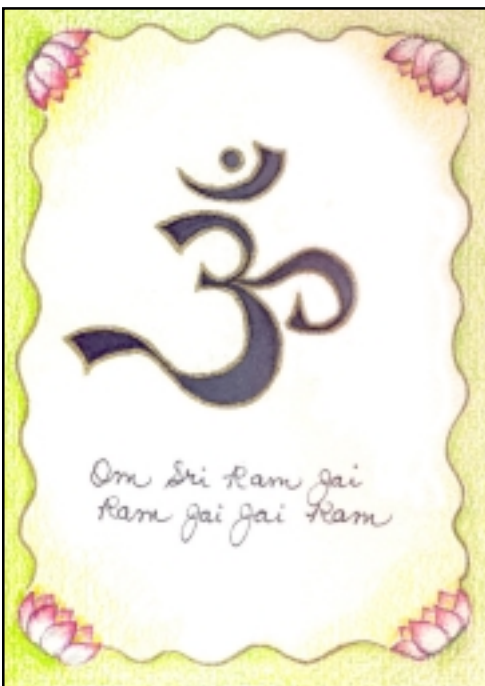 ॐ
Om Sri Ram Jai
Ram Jai Jai Ram